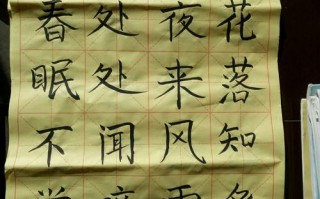 春眠不
处处闻
夜来风雨
花落知多